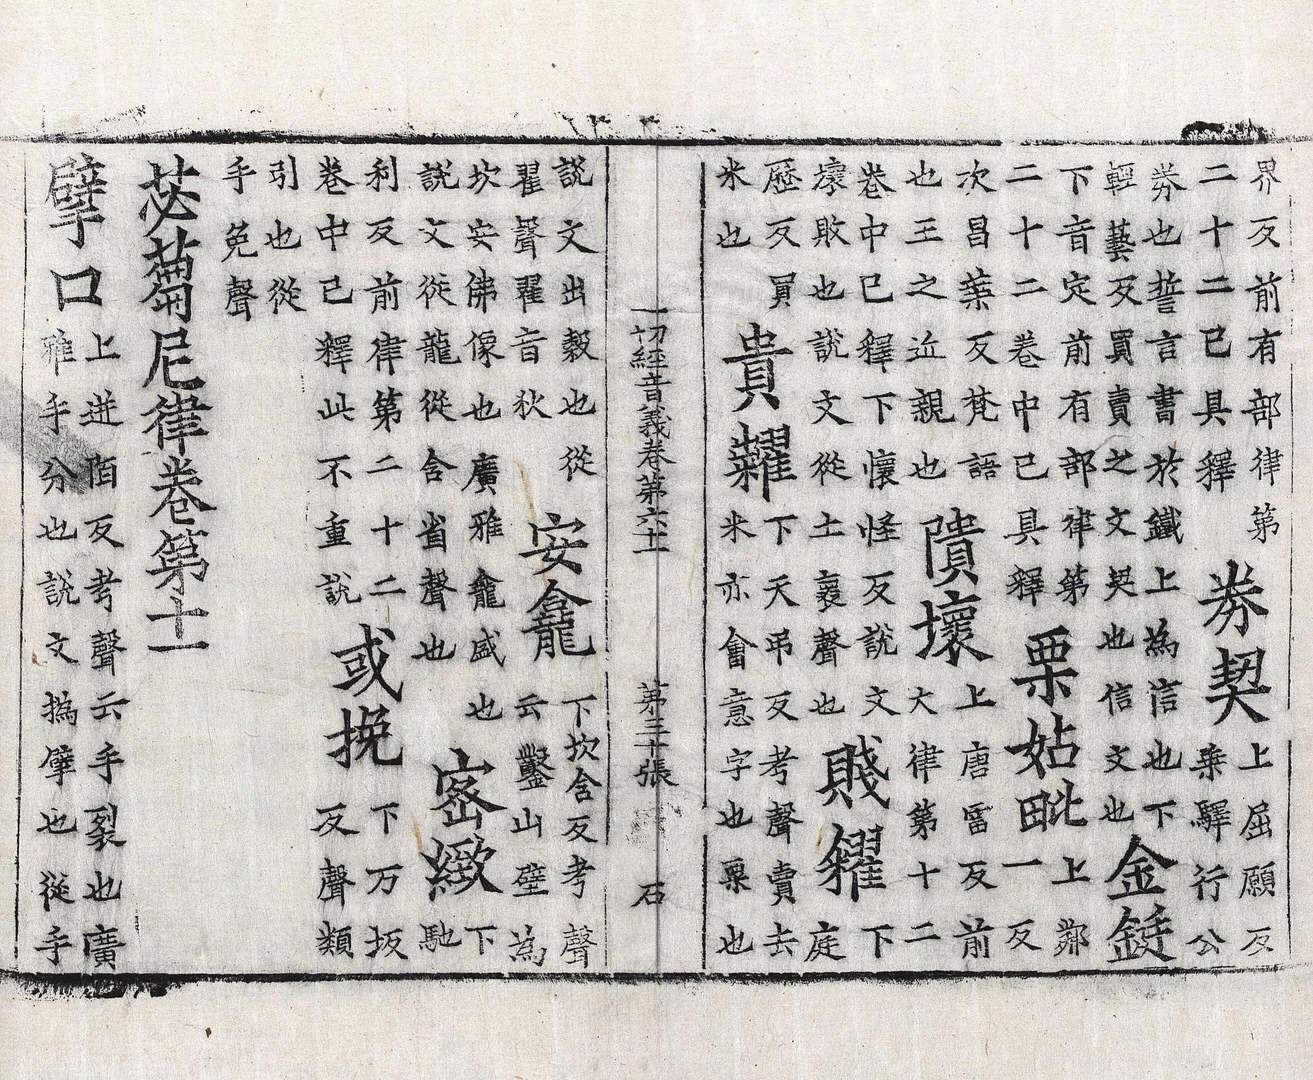 界反前有部律第二十二已具釋券契上屈願反乗驛行公
券也誓言書於鐵上為信也下輕藝反買賣之文契也信文也金鋌
下音定前有部律第二十二卷中已具釋栗姑毗上鄰一反
次昌葉反梵語也王之近親也隤壞上唐雷反前大律第十二
卷中已釋下懷怪反說文壞敗也說文從土褱聲也賤糴下庭
歷反買米也貴糶下天弔反考聲賣去米亦會意字也粟也
一切經音義卷第六十一 第三十張 石
說文出穀也從翟聲翟音狄安龕下坎含反考聲云鑿山壁為
坎安佛像也廣雅龕盛也說文從龍從含省聲也密緻下馳
利反前律第二十二卷中已釋此不重說或挽下万坂反聲類
引也從手免聲
苾蒭尼律卷第十一
擘口上迸佰反考聲云手裂也廣雅手分也說文撝擘也從手